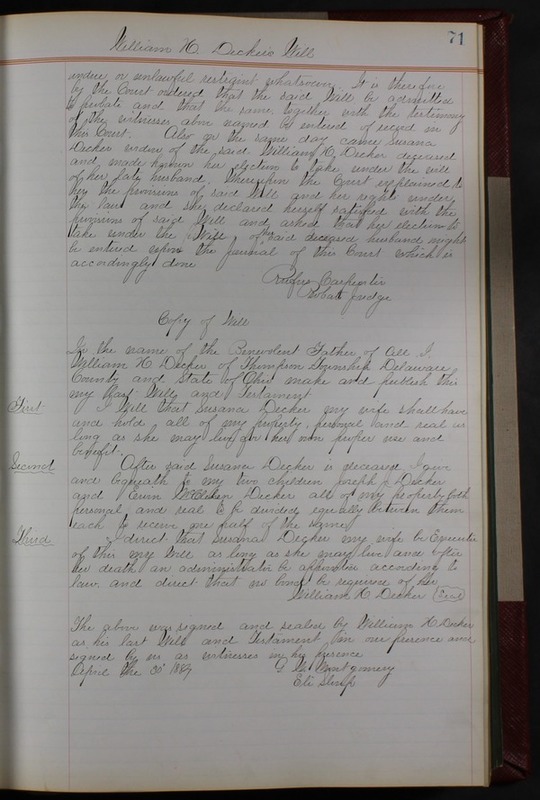 71
William H. Decker's Will
undue or unlawful restraint whatsoever. It is therefore
by the Court ordered that the said Will be admitted
to probate and that the same, together with the testimony
of the witnesses above named be entered of record in
this Court. Also on the same day came Susana
Decker widow of the said William H. Decker deceased
and made known her election to take under the will
of her late husband. Whereupon the Court explained to
her the provisions of said Will and her rights under
the law and she declared herself satisfied with the
provisions of said Will and asked that her election to
take under the Will of her said deceased husband might
be entered upon the journal of this Court which is
accordingly done
Rufus Carpenter
Probate Judge
Copy of Will
In the name of the Benevolent Father of All I,
William H Decker of Thompson Township Delaware
County and State of Ohio make and publish this
my Last Will and Testament
First I Will that Susana Decker my wife shall have
and hold all of my property, personal and real as
long as she may live for her own proper use and
benefit.
Second After said Susana Decker is deceased I give
and bequeath to my two children Joseph Decker
and Decker all of my property both
personal and real to be divided equally between them
each to receive one half of the same
Third I direct that Susana Decker my wife be Executor
of this my Will as long as she may live and after
her death an administrator be appointed according to
law. and direct that no bond be required of her
William H Decker (Seal)
The above was signed and sealed by William H Decker
as his last Will and Testament, in our presence and
signed by us as witnesses in his presence
April the 30" 1889
Montgomery
Eli